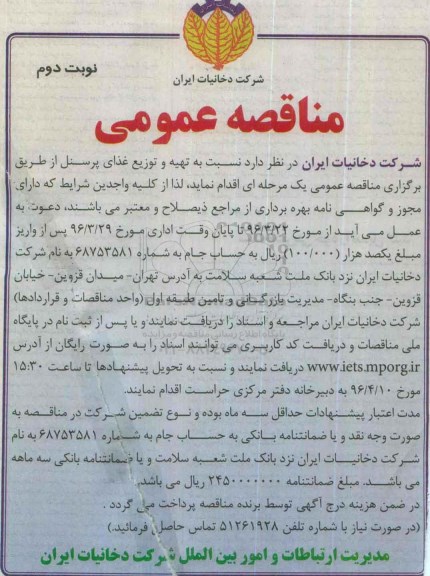 شرکت دخانیات ایران
نوبت دوم
مناقصه عمومی
شرکت دخانیات ایران در نظر دارد نسبت به تهیه و توزیع غذای پرسنل از طریق
برگزاری مناقصه عمومی یک مرحله ای اقدام نماید، لذا از کلیه واجدین شرایط که دارای
مجوز و گواهی نامه بهره برداری از مراجع ذیصلاح و معتبر می باشند، دعوت به
عمل می آید از مورخ ۹۶/۳/۲۲ تا پایان وقت اداری مورخ ۹۶/۳/۲۹ پس از واریز
مبلغ یکصد هزار (۱۰۰/۰۰۰) ریال به حساب جام به شماره ۶۸۷۵۳۵۸۱ به نام شرکت
دخانیات ایران نزد بانک ملت شعبه سلامت به آدرس تهران- میدان قزوین- خیابان
قزوین- جنب بنگاه- مدیریت بازرگانی و تامین طبقه اول (واحد مناقصات و قراردادها)
شرکت دخانیات ایران مراجعه و اسناد را دریافت نمایند و یا پس از ثبت نام در پایگاه
ملی مناقصات و دریافت کد کاربری می توانند اسناد را به صورت رایگان از آدرس
www.iets.mporg.ir دریافت نمایند و نسبت به تحویل پیشنهادها تا ساعت ۱۵:۳۰
مورخ ۹۶/۴/۱۰ به دبیرخانه دفتر مرکزی حراست اقدام نمایند.
مدت اعتبار پیشنهادات حداقل سه ماه بوده و نوع تضمین شرکت در مناقصه به
صورت وجه نقد و یا ضمانتنامه بانکی به حساب جام به شماره ۶۸۷۵۳۵۸۱ به نام
شرکت دخانیات ایران نزد بانک ملت شعبه سلامت و یا ضمانتنامه بانکی سه ماهه
می باشد. مبلغ ضمانتنامه ۲۴۵۰۰۰۰۰۰۰ ریال می باشد.
در ضمن هزینه درج آگهی توسط برنده مناقصه پرداخت می گردد .
(در صورت نیاز با شماره تلفن ۵۱۲۶۱۹۲۸ تماس حاصل فرمائید.)
مدیریت ارتباطات و امور بین الملل شرکت دخانیات ایران